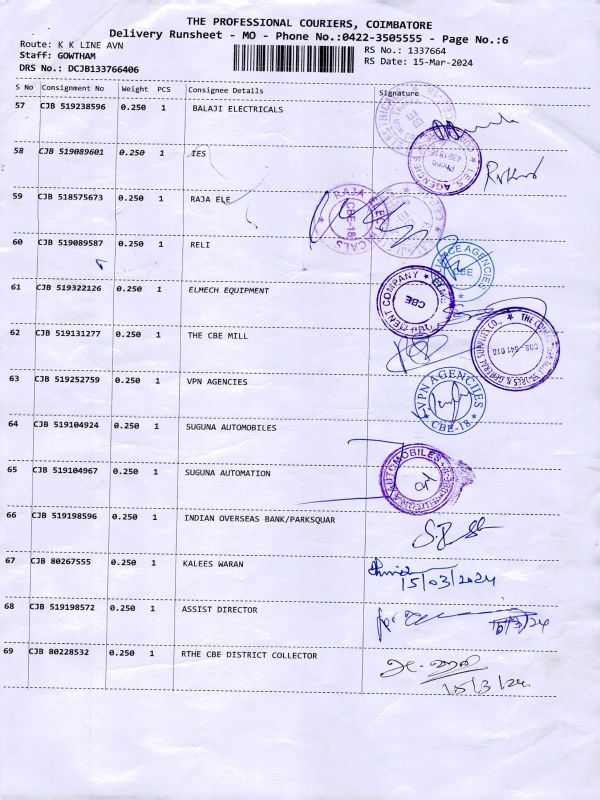 THE PROFESSIONAL COURIERS, COIMBATORE
Delivery Runsheet - MO - Phone No.:0422-3505555 - Page No.:6
Route: K K LINE AVN
RS No.: 1337664
Staff: GOWTHAM
RS Date: 15-Mar-2024
DRS No.: DCJB133766406
S No Consignment No Weight PCS Consignee Details Signature
57 CJB 519238596 0.250 1 BALAJI ELECTRICALS
58 CJB 519089601 0.250 1 IES
59 CJB 518575673 0.250 1 RAJA ELE
RAJA
CBE-18
60 CJB 519089587 0.250 1 RELI
AGENCIES
CBE
61 CJB 519322126 0.250 1 ELMECH EQUIPMENT
COMPANY
CBE
62 CJB 519131277 0.250 1 THE CBE MILL
CBE - 641 018
63 CJB 519252759 0.250 1 VPN AGENCIES
VPN AGENCIES
CBE-18
64 CJB 519104924 0.250 1 SUGUNA AUTOMOBILES
AUTOMOBILES
65 CJB 519104967 0.250 1 SUGUNA AUTOMATION
66 CJB 519198596 0.250 1 INDIAN OVERSEAS BANK/PARKSQUAR
67 CJB 80267555 0.250 1 KALEES WARAN
15/03/2024
68 CJB 519198572 0.250 1 ASSIST DIRECTOR
15/3/24
69 CJB 80228532 0.250 1 RTHE CBE DISTRICT COLLECTOR
15/3/24